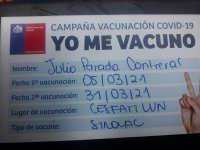 CAMPAÑA VACUNACIÓN COVID-19
YO ME VACUNO
Nombre: Julio Parada Contreras
Fecha 1ª vacunación: 05/03/21
Fecha 2ª vacunación: 31/03/21
Lugar de vacunación:
Tipo de vacuna: